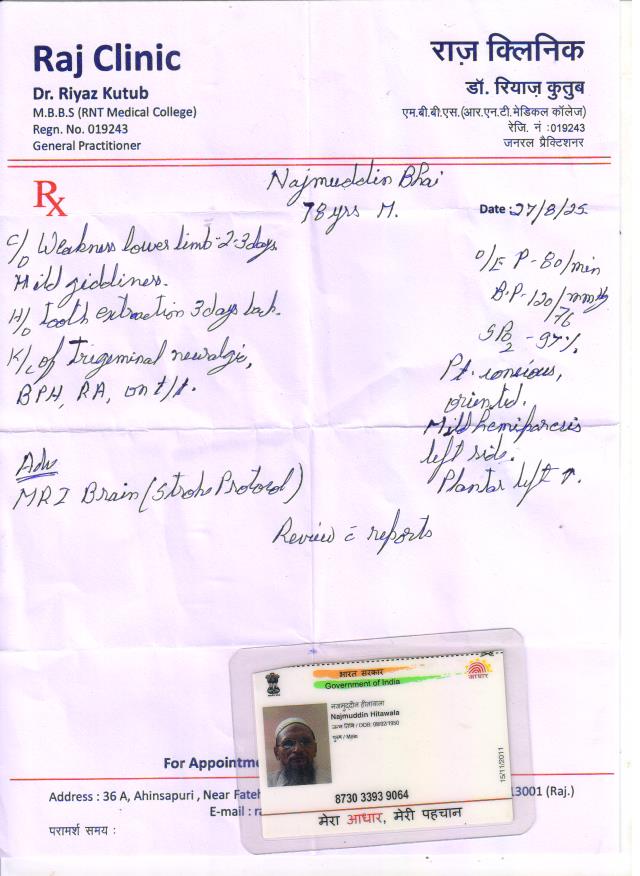 Raj Clinic
Dr. Riyaz Kutub
M.B.B.S (RNT Medical College)
Regn. No. 019243
General Practitioner
राज़ क्लिनिक
डॉ. रियाज़ कुतुब
एम.बी.बी.एस.(आर.एन.टी.मेडिकल कॉलेज)
रेजि. नं :019243
जनरल प्रैक्टिशनर
Rx
Najmuddin Bhai
78 yrs M.
Date : 27/8/25
C/O Weakness lower limb - 2-3 days.
Mild giddiness.
H/O tooth extraction 3 days back.
K/C of Trigeminal neuralgia,
BPH, RA, on t/t.
O/E P - 80/min
B.P - 120/76 mmHg
SPO2 - 97%
Pt. concious,
oriented.
Mild hemiparesis
left side.
Plantar left ↑.
Adv
MRI Brain (Stroke Protocol)
Review c̄ reports
भारत सरकार
Government of India
आधार
नजमुद्दीन हीतावाला
Najmuddin Hitawala
जन्म तिथि / DOB:
पुरुष / Male
15/11/2011
8730 3393 9064
मेरा आधार, मेरी पहचान
For Appointme
Address : 36 A, Ahinsapuri , Near Fateh
13001 (Raj.)
E-mail : ra
परामर्श समय :